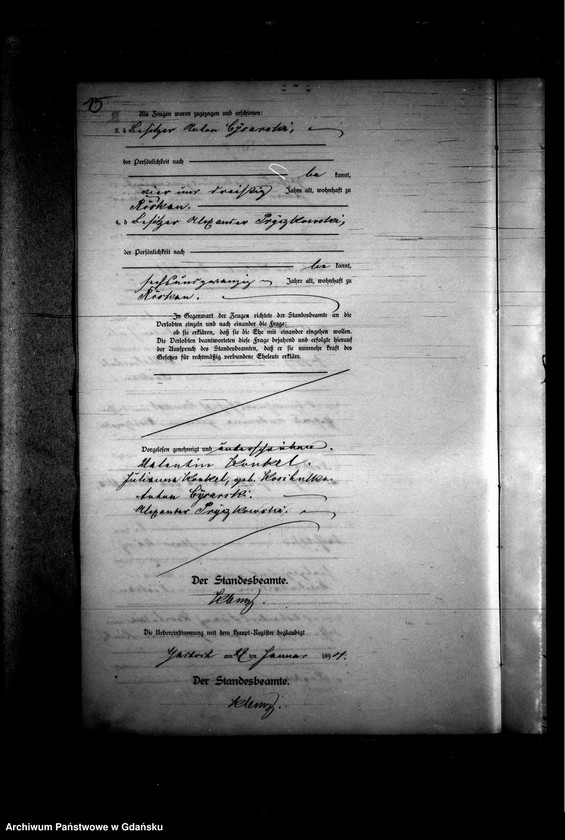 15
Als Zeugen waren zugezogen und erschienen:
3. d Besitzer Anton Cyrarski,
der Persönlichkeit nach
be kannt,
vier und dreißig Jahre alt, wohnhaft zu
4. d Besitzer Alexander Pryczkowski,
der Persönlichkeit nach
be kannt,
sechsundzwanzig Jahre alt, wohnhaft zu
In Gegenwart der Zeugen richtete der Standesbeamte an die
Verlobten einzeln und nach einander die Frage:
ob sie erklären, daß sie die Ehe mit einander eingehen wollen.
Die Verlobten beantworteten diese Frage bejahend und erfolgte hierauf
der Ausspruch des Standesbeamten, daß er sie nunmehr kraft des
Gesetzes für rechtmäßig verbundene Eheleute erkläre.
Vorgelesen, genehmigt und unterschrieben.
Valentin Konkel.
Julianna Konkel, geb.
Anton Cyrarski.
Alexander Pryczkowski.
Der Standesbeamte.
Die Uebereinstimmung mit dem Haupt-Register beglaubigt
am ten Januar
Der Standesbeamte.
Archiwum Państwowe w Gdańsku